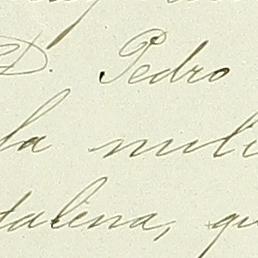 D. Pedro
la mili
talena, qu